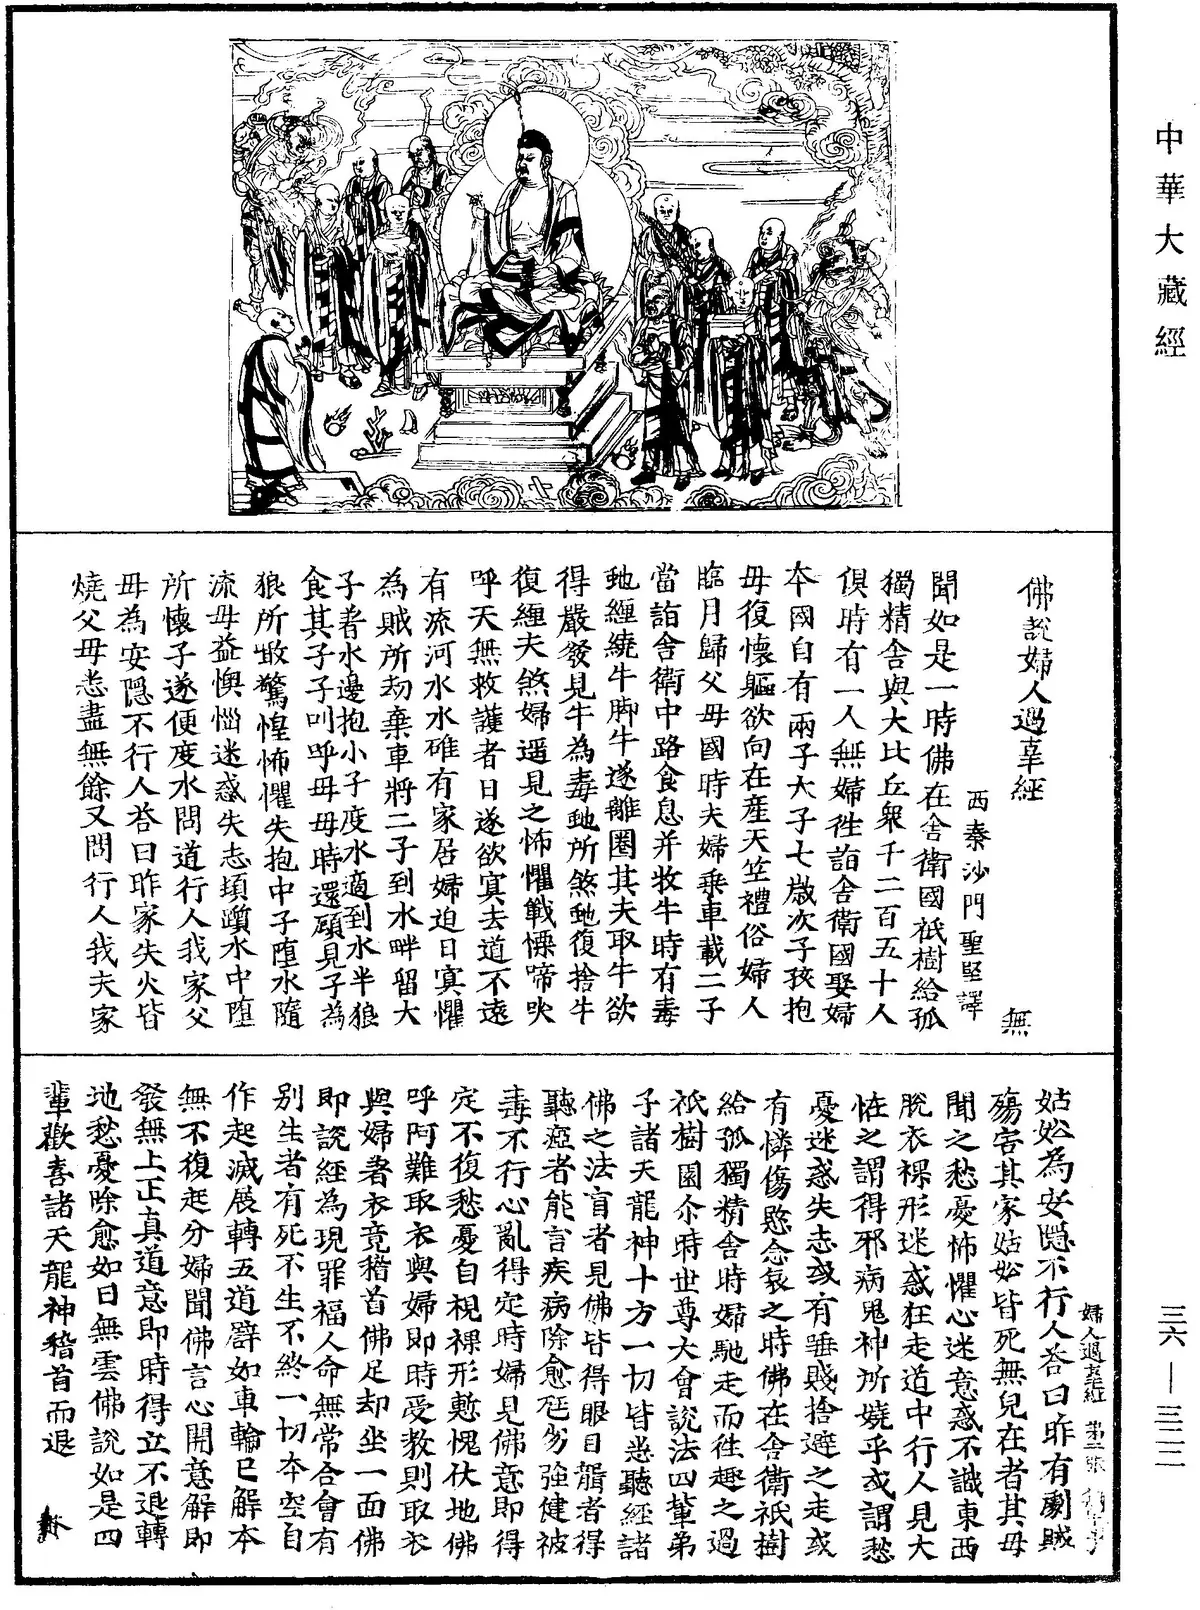 中華大藏經
佛說婦人遇辜經
無
西秦沙門聖堅譯
聞如是一時佛在舍衛國祇樹給孤
獨精舍與大比丘眾千二百五十人
俱時有一人無婦往詣舍衛國娶婦
本國自有兩子大子七歲次子孩抱
母復懷軀欲向在產天竺禮俗婦人
臨月歸父母國時夫婦乘車載二子
當詣舍衛中路食息并牧牛時有毒
虵纏繞牛脚牛遂離圈其夫取牛欲
得嚴發見牛為毒虵所煞虵復捨牛
復纏夫煞婦遥見之怖懼戰慄啼哭
呼天無救護者日遂欲㝠去道不遠
有流河水水碓有家居婦迫日㝠懼
為賊所劫棄車將二子到水畔留大
子著水邊抱小子度水適到水半狼
食其子子叫呼母母時還顧見子為
狼所噉驚惶怖懼失抱中子墮水隨
流母益懊惱迷惑失志頓躓水中墮
所懷子遂便度水問道行人我家父
母為安隱不行人荅曰昨家失火皆
燒父母悉盡無餘又問行人我夫家
姑妐為安隱不行人荅曰昨有劇賊
殤害其家姑妐皆死無兒在者其母
聞之愁憂怖懼心迷意惑不識東西
脫衣裸形迷惑狂走道中行人見大
恠之謂得邪病鬼神所嬈乎或謂愁
憂迷惑失志或有垂賤捨避之走或
有憐傷愍念哀之時佛在舍衛祇樹
給孤獨精舍時婦馳走而往趣之過
祇樹園尒時世尊大會說法四輩弟
子諸天龍神十方一切皆悉聽經諸
佛之法盲者見佛皆得眼目聾者得
聽瘂者能言疾病除愈尫劣強健被
毒不行心亂得定時婦見佛意即得
定不復愁憂自視裸形慙愧伏地佛
呼阿難取衣與婦即時受教則取衣
與婦著衣竟稽首佛足却坐一面佛
即說經為現罪福人命無常合會有
別生者有死不生不終一切本空自
作起滅展轉五道譬如車輪已解本
無不復起分婦聞佛言心開意解即
發無上正真道意即時得立不退轉
地愁憂除愈如日無雲佛說如是四
輩歡喜諸天龍神稽首而退
婦人遇辜經 第二張
三六—三二二